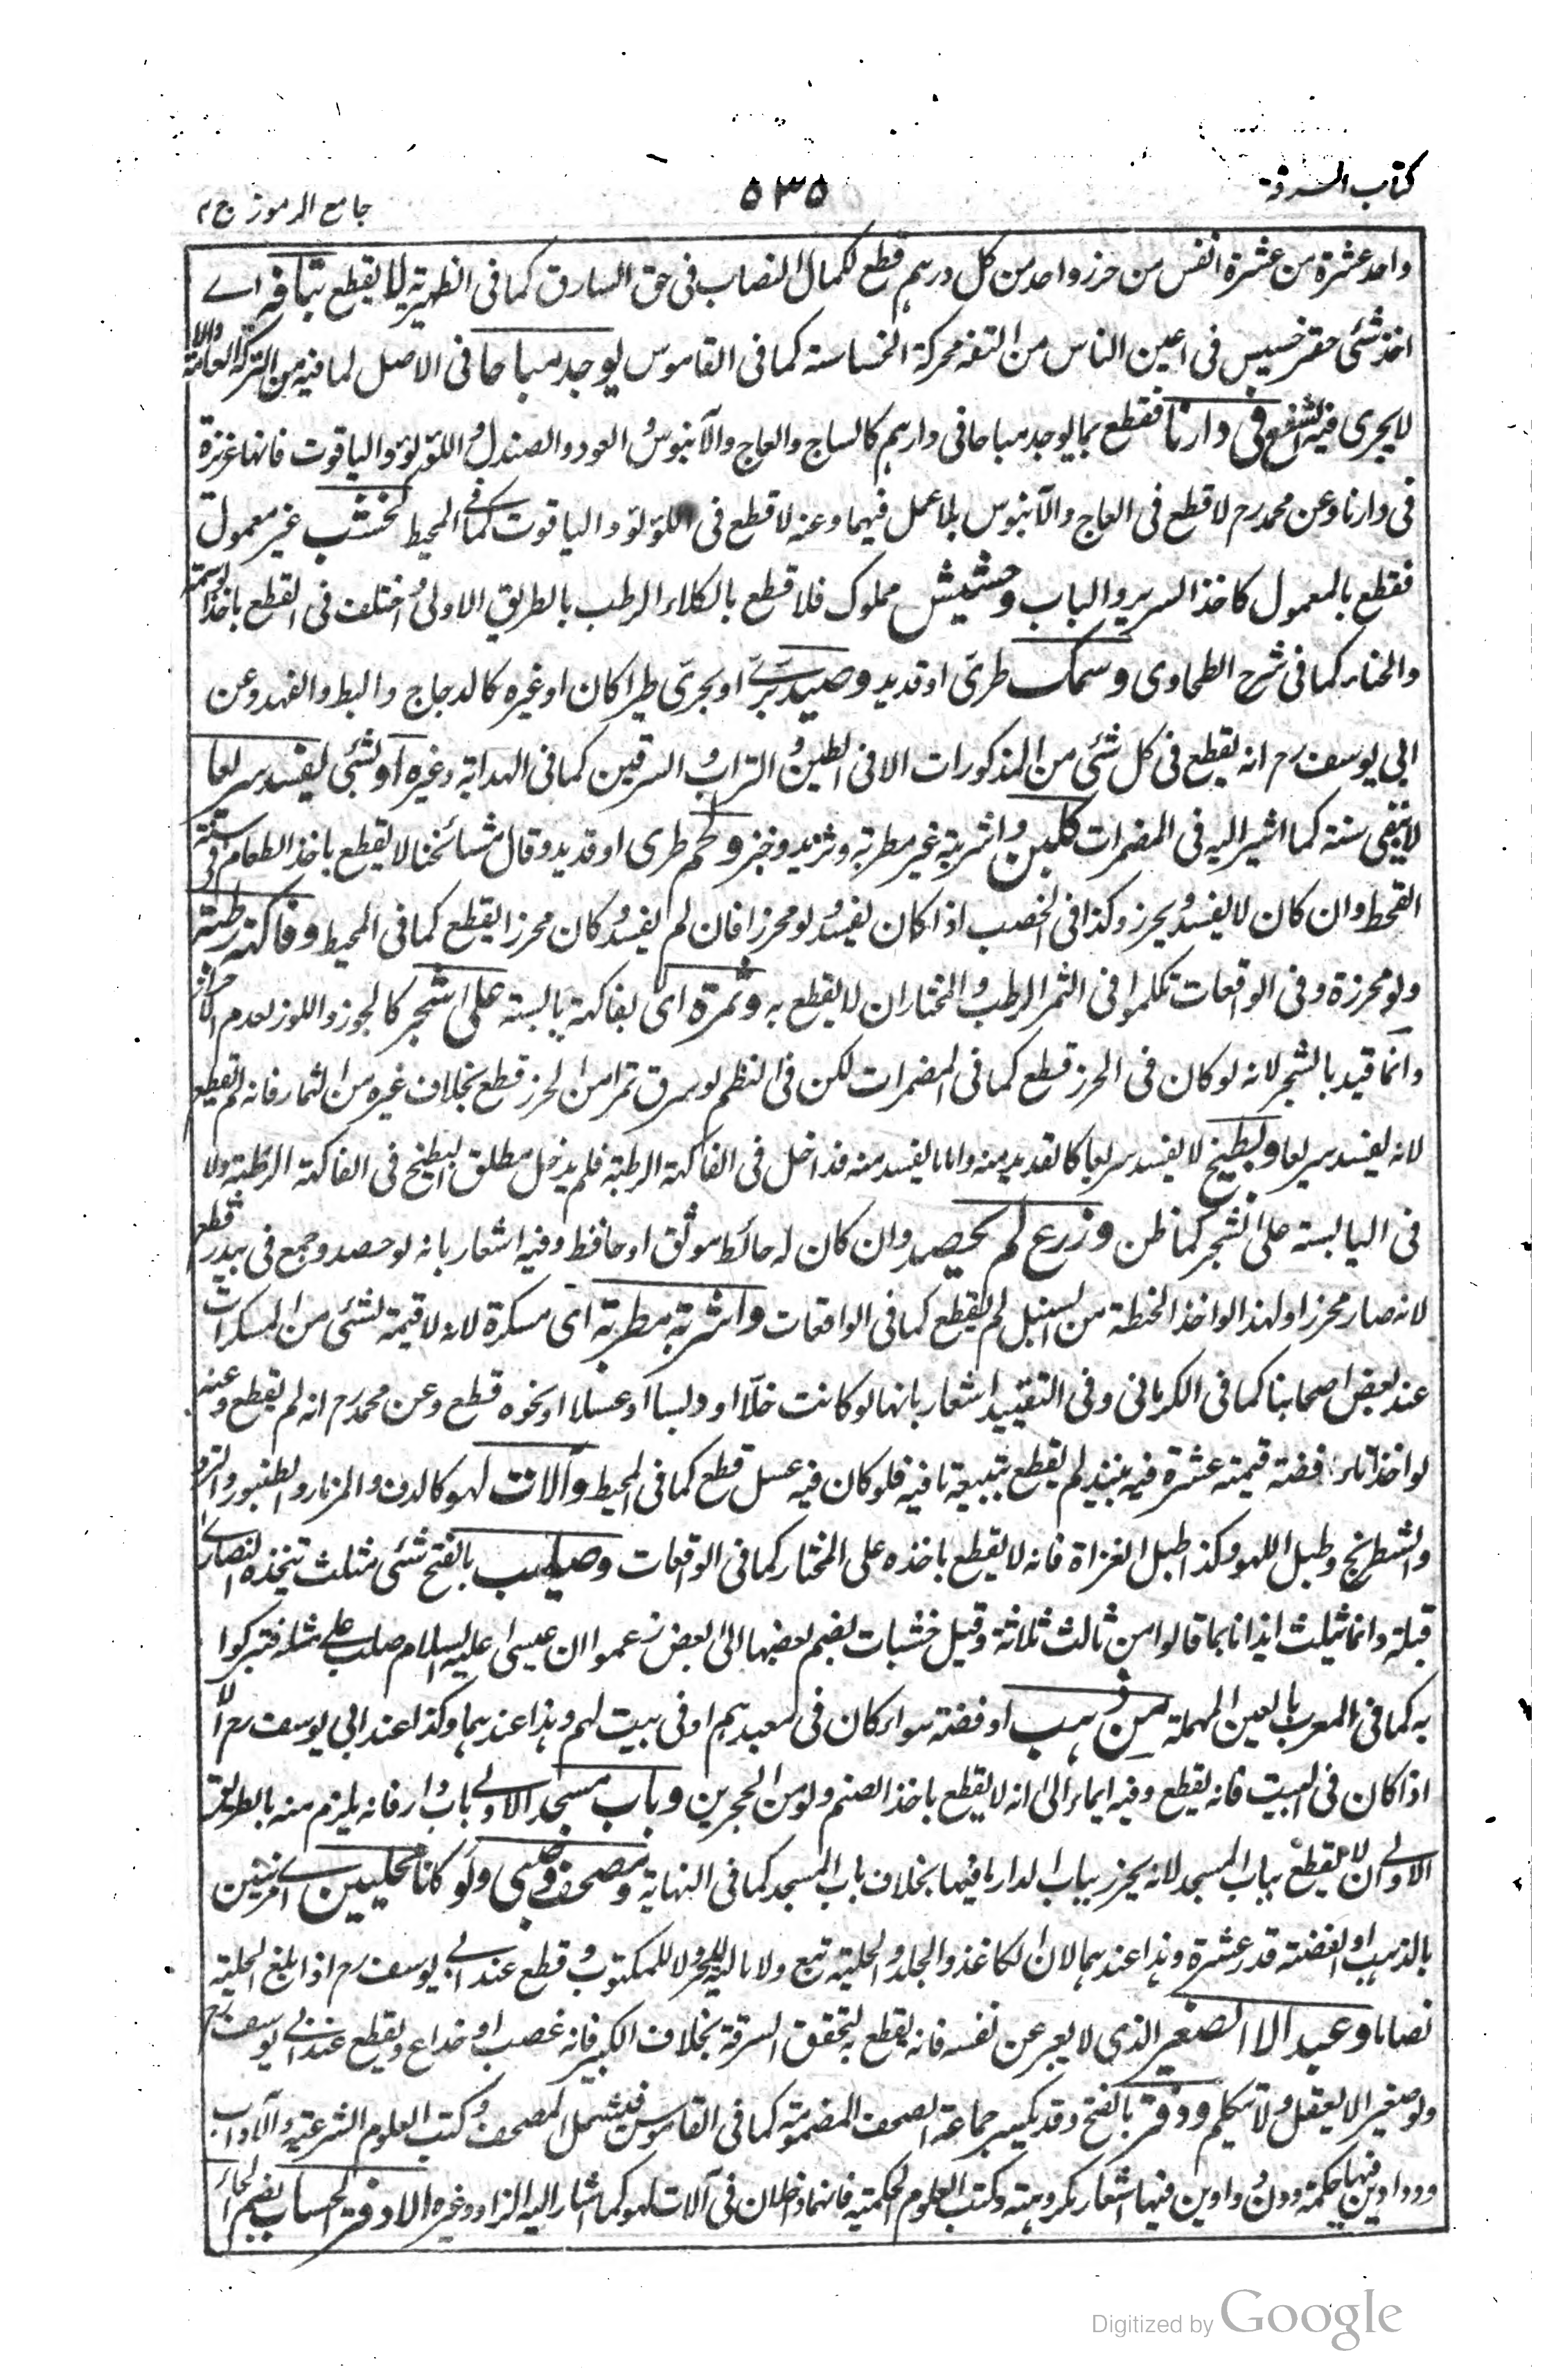 كتاب السرقة
٥٣٥
جامع الرموز ج ٢
واحد عشرة من عشرة انفس من حرز واحد من كل درهم قطع لكمال النصاب فى حق السارق كما فى الظهيرية لا يقطع بتافه اے
اخذ شئ حقير خسيس فى اعين الناس من التفه محركة الخساسة كما فى القاموس يوجد مباحا فى الاصل لما فيه من الشركة العامة والا
لا يجرى فيه الشفع فى دارنا فقطع بما يوجد مباحا فى دارهم كالساج والعاج والآبنوس والعود والصندل و اللؤلؤ والياقوت فانها عزيزة
فى دارنا وعن محمد رح لا قطع فى العاج والآبنوس بلا عمل فيهما وعنه لا قطع فى اللؤلؤ والياقوت كما فى المحيط كخشب غير معمول
فقطع بالمعمول كاخذ السرير والباب وحشيش مملوك فلا قطع بالكلاء الرطب بالطريق الاولى و اختلف فى القطع باخذ الوسمة
والحناء كما فى شرح الطحاوى وسمك طرى او قديد وصيد برى او بحرى طيرا كان او غيره كالدجاج والبط والفهد وعن
ابى يوسف رح انه يقطع فى كل شئ من المذكورات الا فى الطين و التراب و السرقين كما فى الهداية وغيره او لشئ يفسد سريعا
لا يبقى سنة كما اشير اليه فى المضمرات كلبن و اشربة غير مطربة وثريد وخبز ولحم طرى او قديد وقال مشائخنا لا يقطع باخذ الطعام فى سنة
القحط وان كان لا يفسد و يحرز وكذا فى الخصب اذا كان يفسد ولو محرزا فان لم يفسد و كان محرزا يقطع كما فى المحيط وفاكهة رطبة
ولو محرزة وفى الواقعات تكلموا فى الثمر الرطب و المختار ان لا يقطع به وثمرة اى بفاكهة يابسة على شجر كالجوز واللوز لعدم الاحراز
وانما قيد بالشجر لانه لو كان فى الحرز قطع كما فى المضمرات لكن فى النظم لو سرق تمرا من الحرز قطع بخلاف غيره من الثمار فانه لم يقطع
لانه يفسد سريعا وبطيخ لا يفسد سريعا كالقديد منه واما ما يفسد منه فداخل فى الفاكهة الرطبة فلم يدخل مطلق البطيخ فى الفاكهة الرطبة ولا
فى اليابسة على الشجر كما ظن وزرع لم يحصد وان كان له حائط موثق او حافظ وفيه اشعار بانه لو حصد وجمع فى بيدر قطع
لانه صار محرزا ولهذا لو اخذ الحنطة من السنبل لم يقطع كما فى الواقعات واشربة مطربة اى مسكرة لانه لا قيمة لشئ من المسكرات
عند بعض اصحابنا كما فى الكرمانى وفى التقييد اشعار بانها لو كانت خلا او دبسا او عسلا او نحوه قطع وعن محمد رح انه لم يقطع وعنه
لو اخذ اناء فضة قيمته عشرة فيه نبيذ لم يقطع بتبعية ما فيه فلو كان فيه عسل قطع كما فى المحيط وآلات لهو كالدف والمزمار والطنبور والنرد
والشطرنج وطبل اللهو وكذا طبل الغزاة فانه لا يقطع باخذه على المختار كما فى الواقعات وصليب بالفتح شئ مثلث تتخذه النصارى
قبلة وانما يثلث ايذانا بما قالوا من ثالث ثلاثة وقيل خشبات يضم بعضها الى بعض زعموا ان عيسى عليه السلام صلب على مثله فتبركوا
به كما فى المعرب بالعين المهملة من ذهب او فضة سواء كان فى معبدهم او فى بيت لهم وهذا عندهما وكذا عند ابى يوسف رح الا
اذا كان فى البيت فانه يقطع وفيه ايماء الى انه لا يقطع باخذ الصنم ولو من الحجرين وباب مسجد الاولى باب دار فانه يلزم منه بالطريق
الاولى ان لا يقطع بباب المسجد لانه يحرز بباب الدار ما فيها بخلاف باب المسجد كما فى النهاية ومصحف وصبى ولو كانا محليين اى مزينين
بالذهب او الفضة قدر عشرة وهذا عندهما لان الكاغذ والجلد و الحلية تبع ولا مالية للحر ولا للمكتوب و قطع عند ابى يوسف رح اذا بلغ الحلية
نصابا وعبد الا الصغير الذى لا يعبر عن نفسه فانه يقطع به لتحقق السرقة بخلاف الكبير فانه غصب او خداع ويقطع عند ابى يوسف رح
ولو صغيرا لا يعقل ولا يتكلم ودفتر بالفتح وقد يكسر جماعة الصحف المضمومة كما فى القاموس فيشمل المصحف و كتب العلوم الشرعية والآداب
ودواوين فيها حكمة و دواوين فيها اشعار مكروهة وكتب العلوم الحكمية فانهما داخلان فى آلات لهو كما اشار اليه الزاد وغيره الا دفتر الحساب بضم الحاء
Digitized by Google